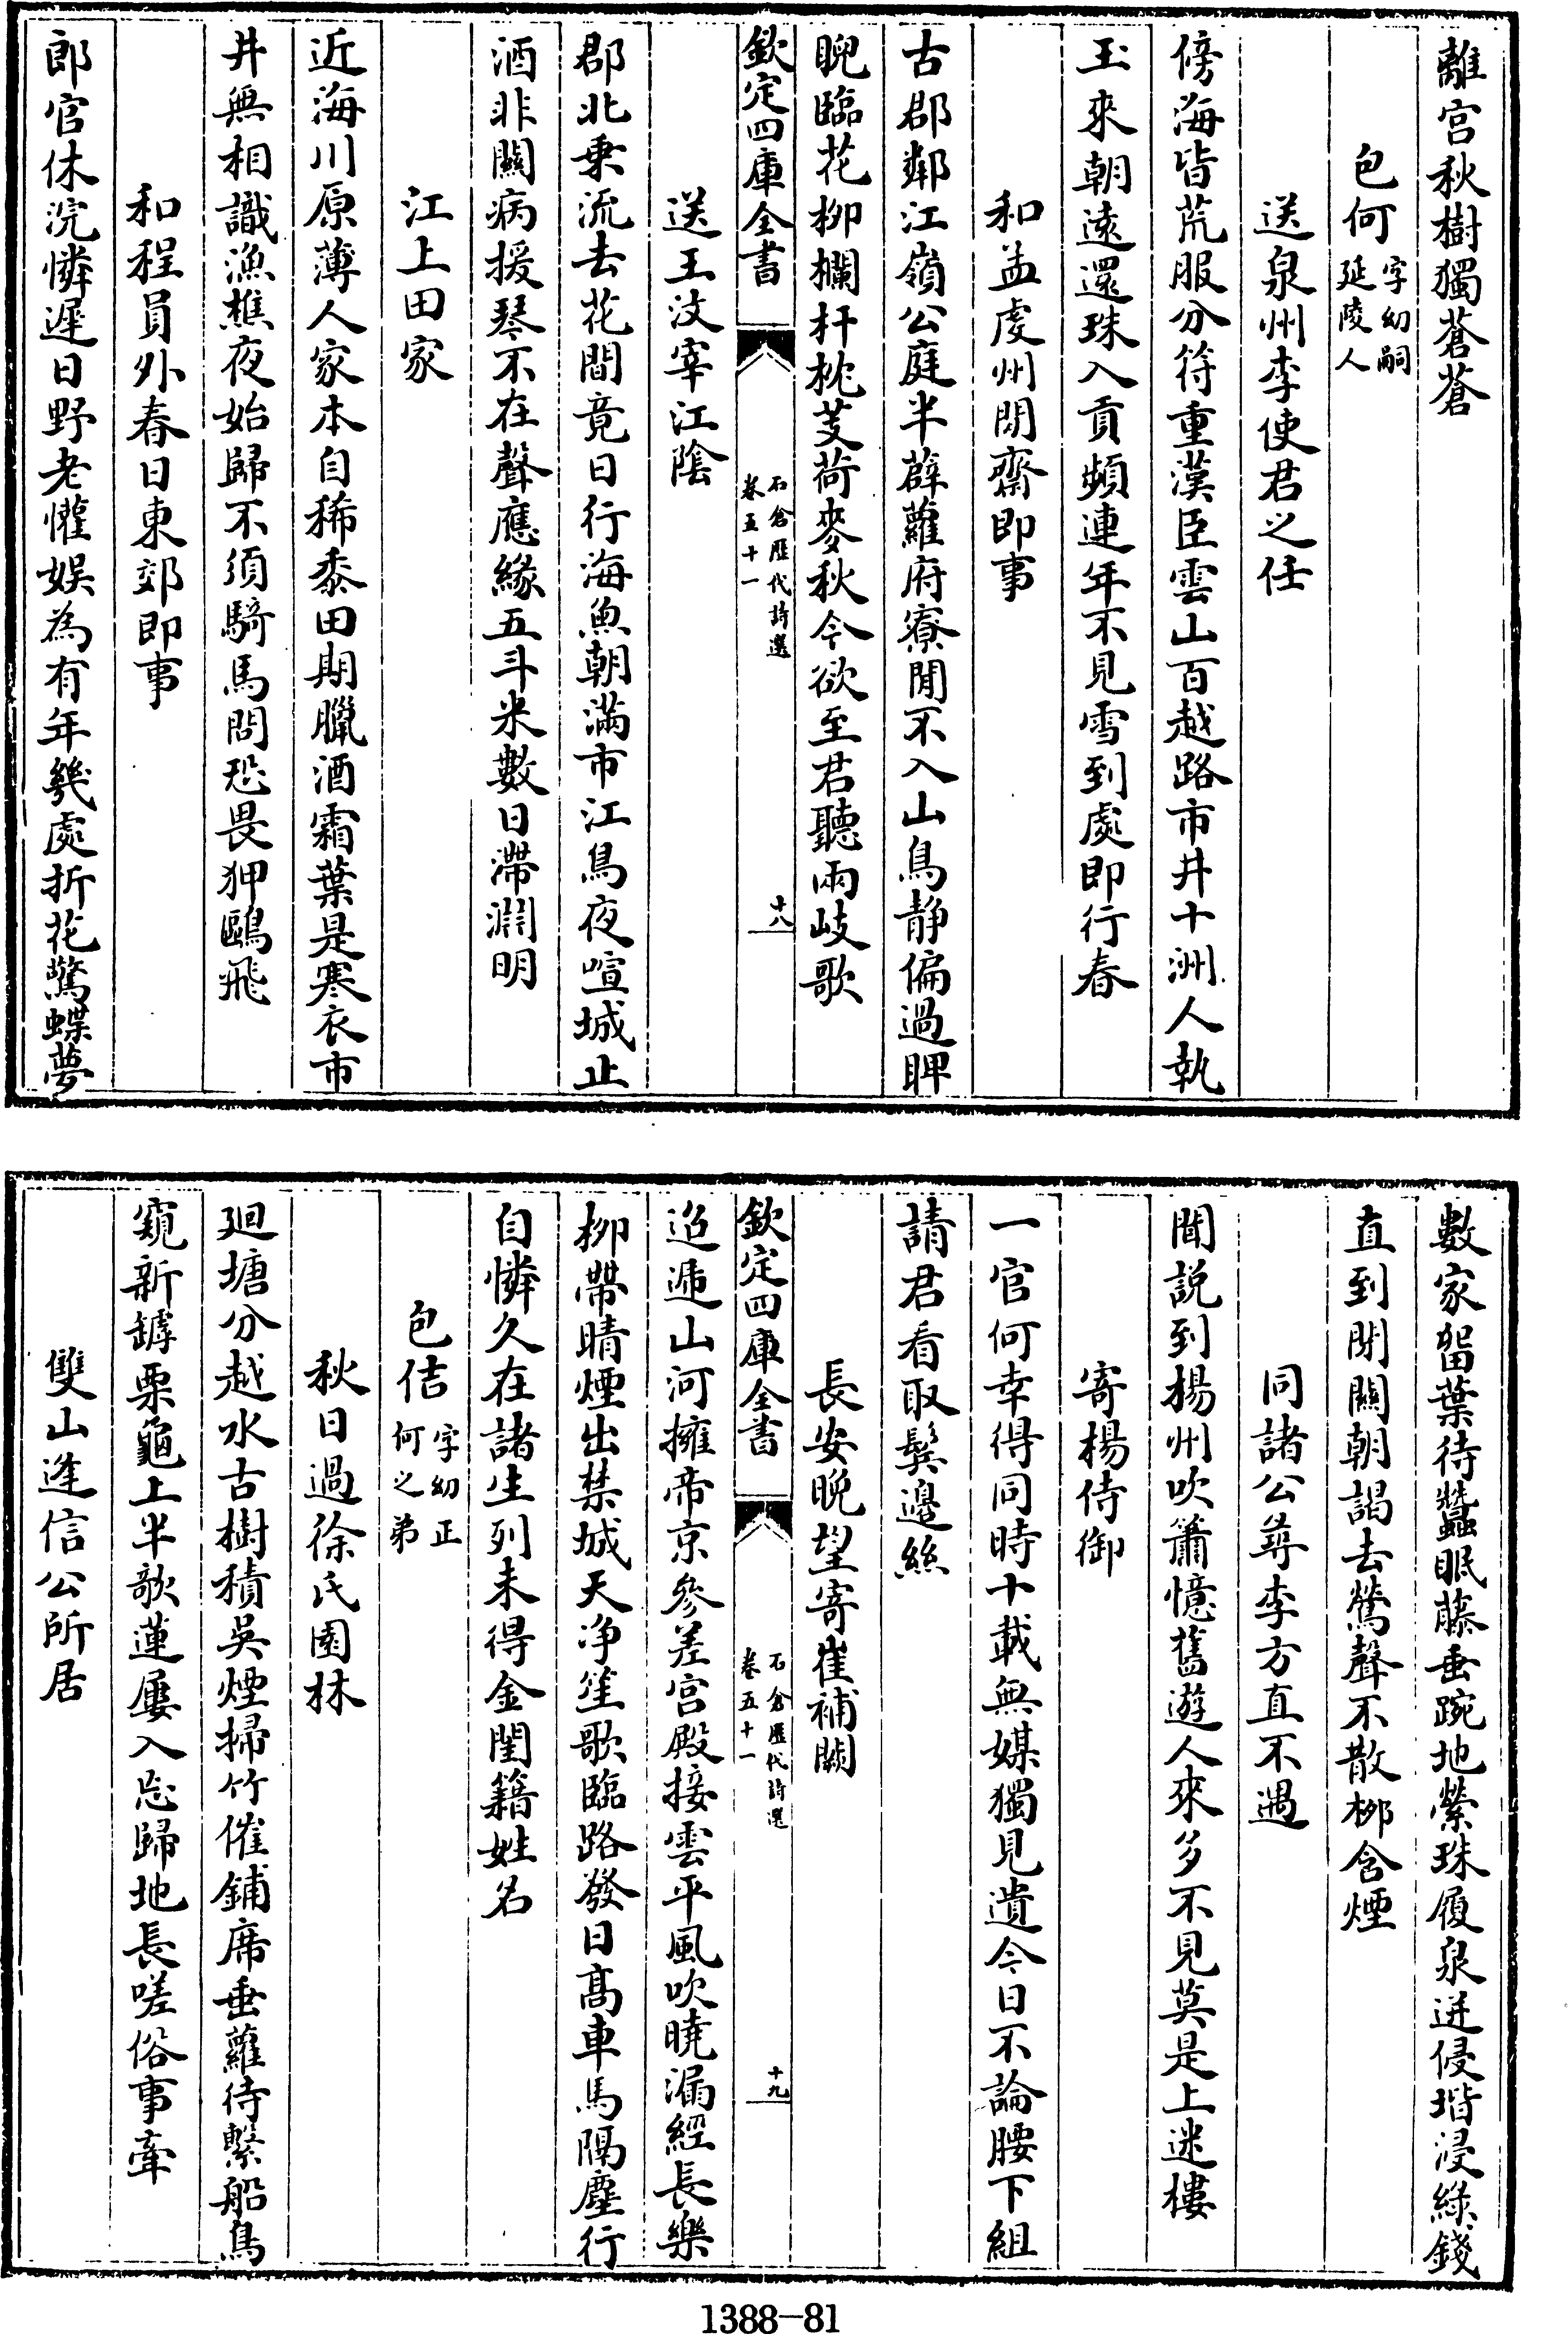 離宫秋樹獨蒼蒼
包何字幼嗣延陵人
送泉州李使君之任
傍海皆荒服分符重漢臣雲山百越路市井十洲人執
玉來朝遠還珠入貢頻連年不見雪到處即行春
和孟虔州閒齋即事
古郡鄰江嶺公庭半薜蘿府寮閒不入山鳥靜偏過睥
睨臨花栁欄杆枕芰荷麥秋今欲至君聽兩岐歌
欽定四庫全書
石倉歴代詩選
卷五十一
十八
送王汶宰江隂
郡北乗流去花間竟日行海魚朝滿市江鳥夜喧城止
酒非關病援琴不在聲應緣五斗米數日滯淵明
江上田家
近海川原薄人家本自稀黍田期臘酒霜葉是寒衣市
井無相識漁樵夜始歸不須騎馬問恐畏狎鷗飛
和程員外春日東郊即事
郎官休浣憐遲日野老懽娛為有年幾處折花驚蝶夢
數家留葉待蠶眠藤垂踠地縈珠履泉迸侵堦浸緑錢
直到閉關朝謁去鶯聲不散栁含煙
同諸公尋李方直不遇
聞説到楊州吹簫憶舊遊人來多不見莫是上迷樓
寄楊侍御
一官何幸得同時十載無媒獨見遺今日不論腰下組
請君看取鬢邊絲
長安晚望寄崔補闕
欽定四庫全書
石倉歴代詩選
卷五十一
十九
迢遞山河擁帝京參差宫殿接雲平風吹曉漏經長樂
栁帶晴煙出禁城天净笙歌臨路發日髙車馬隔塵行
自憐久在諸生列未得金閨籍姓名
包佶字幼正何之弟
秋日過徐氏園林
廻塘分越水古樹積吳煙掃竹催鋪席垂蘿待繫船鳥
窺新罅栗龜上半欹蓮屢入忘歸地長嗟俗事牽
雙山逢信公所居
1388-81